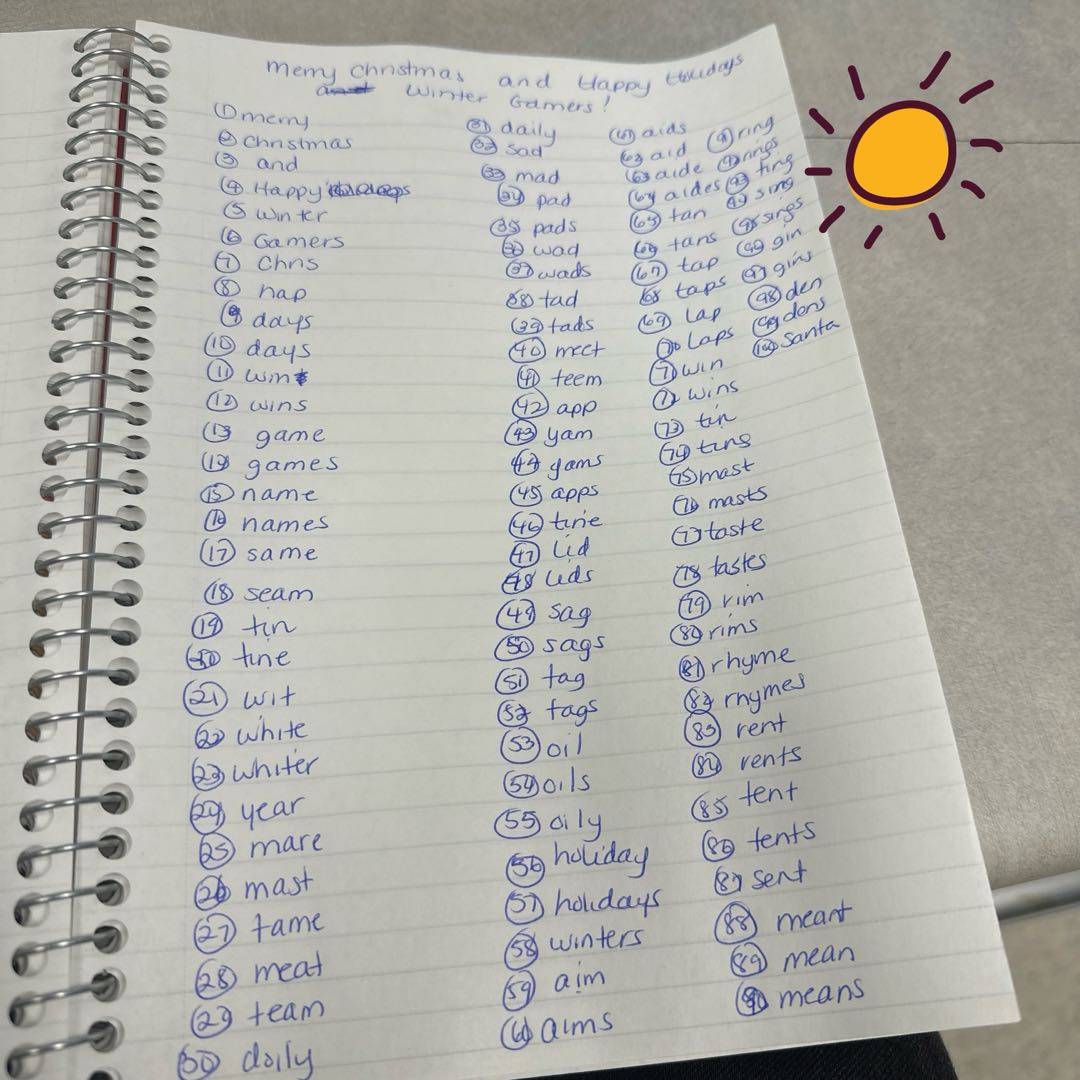 Merry Christmas and Happy Holidays
Winter Gamers!
① merry
② Christmas
③ and
④ Happy
⑤ Winter
⑥ Gamers
⑦ Chris
⑧ hap
⑨ days
⑩ days
⑪ win
⑫ wins
⑬ game
⑭ games
⑮ name
⑯ names
⑰ same
⑱ seam
⑲ tin
⑳ tine
㉑ wit
㉒ white
㉓ whiter
㉔ year
㉕ mare
㉖ mast
㉗ tame
㉘ meat
㉙ team
㉚ doily
㉛ daily
㉜ sad
㉝ mad
㉞ pad
㉟ pads
㊱ wad
㊲ wads
㊳ tad
㊴ tads
㊵ meet
㊶ teem
㊷ app
㊸ yam
㊹ yams
㊺ apps
㊻ tine
㊼ lid
㊽ lids
㊾ sag
㊿ sags
51 tag
52 tags
53 oil
54 oils
55 oily
56 holiday
57 holidays
58 winters
59 aim
60 aims
61 aids
62 aid
63 aide
64 aides
65 tan
66 tans
67 tap
68 taps
69 Lap
70 Laps
71 win
72 wins
73 tin
74 tins
75 mast
76 masts
77 taste
78 tastes
79 rim
80 rims
81 rhyme
82 rhymes
83 rent
84 rents
85 tent
86 tents
87 sent
88 meant
89 mean
90 means
91 ring
92 rings
93 ting
94 sing
95 sings
96 gin
97 gins
98 den
99 dens
100 Santa